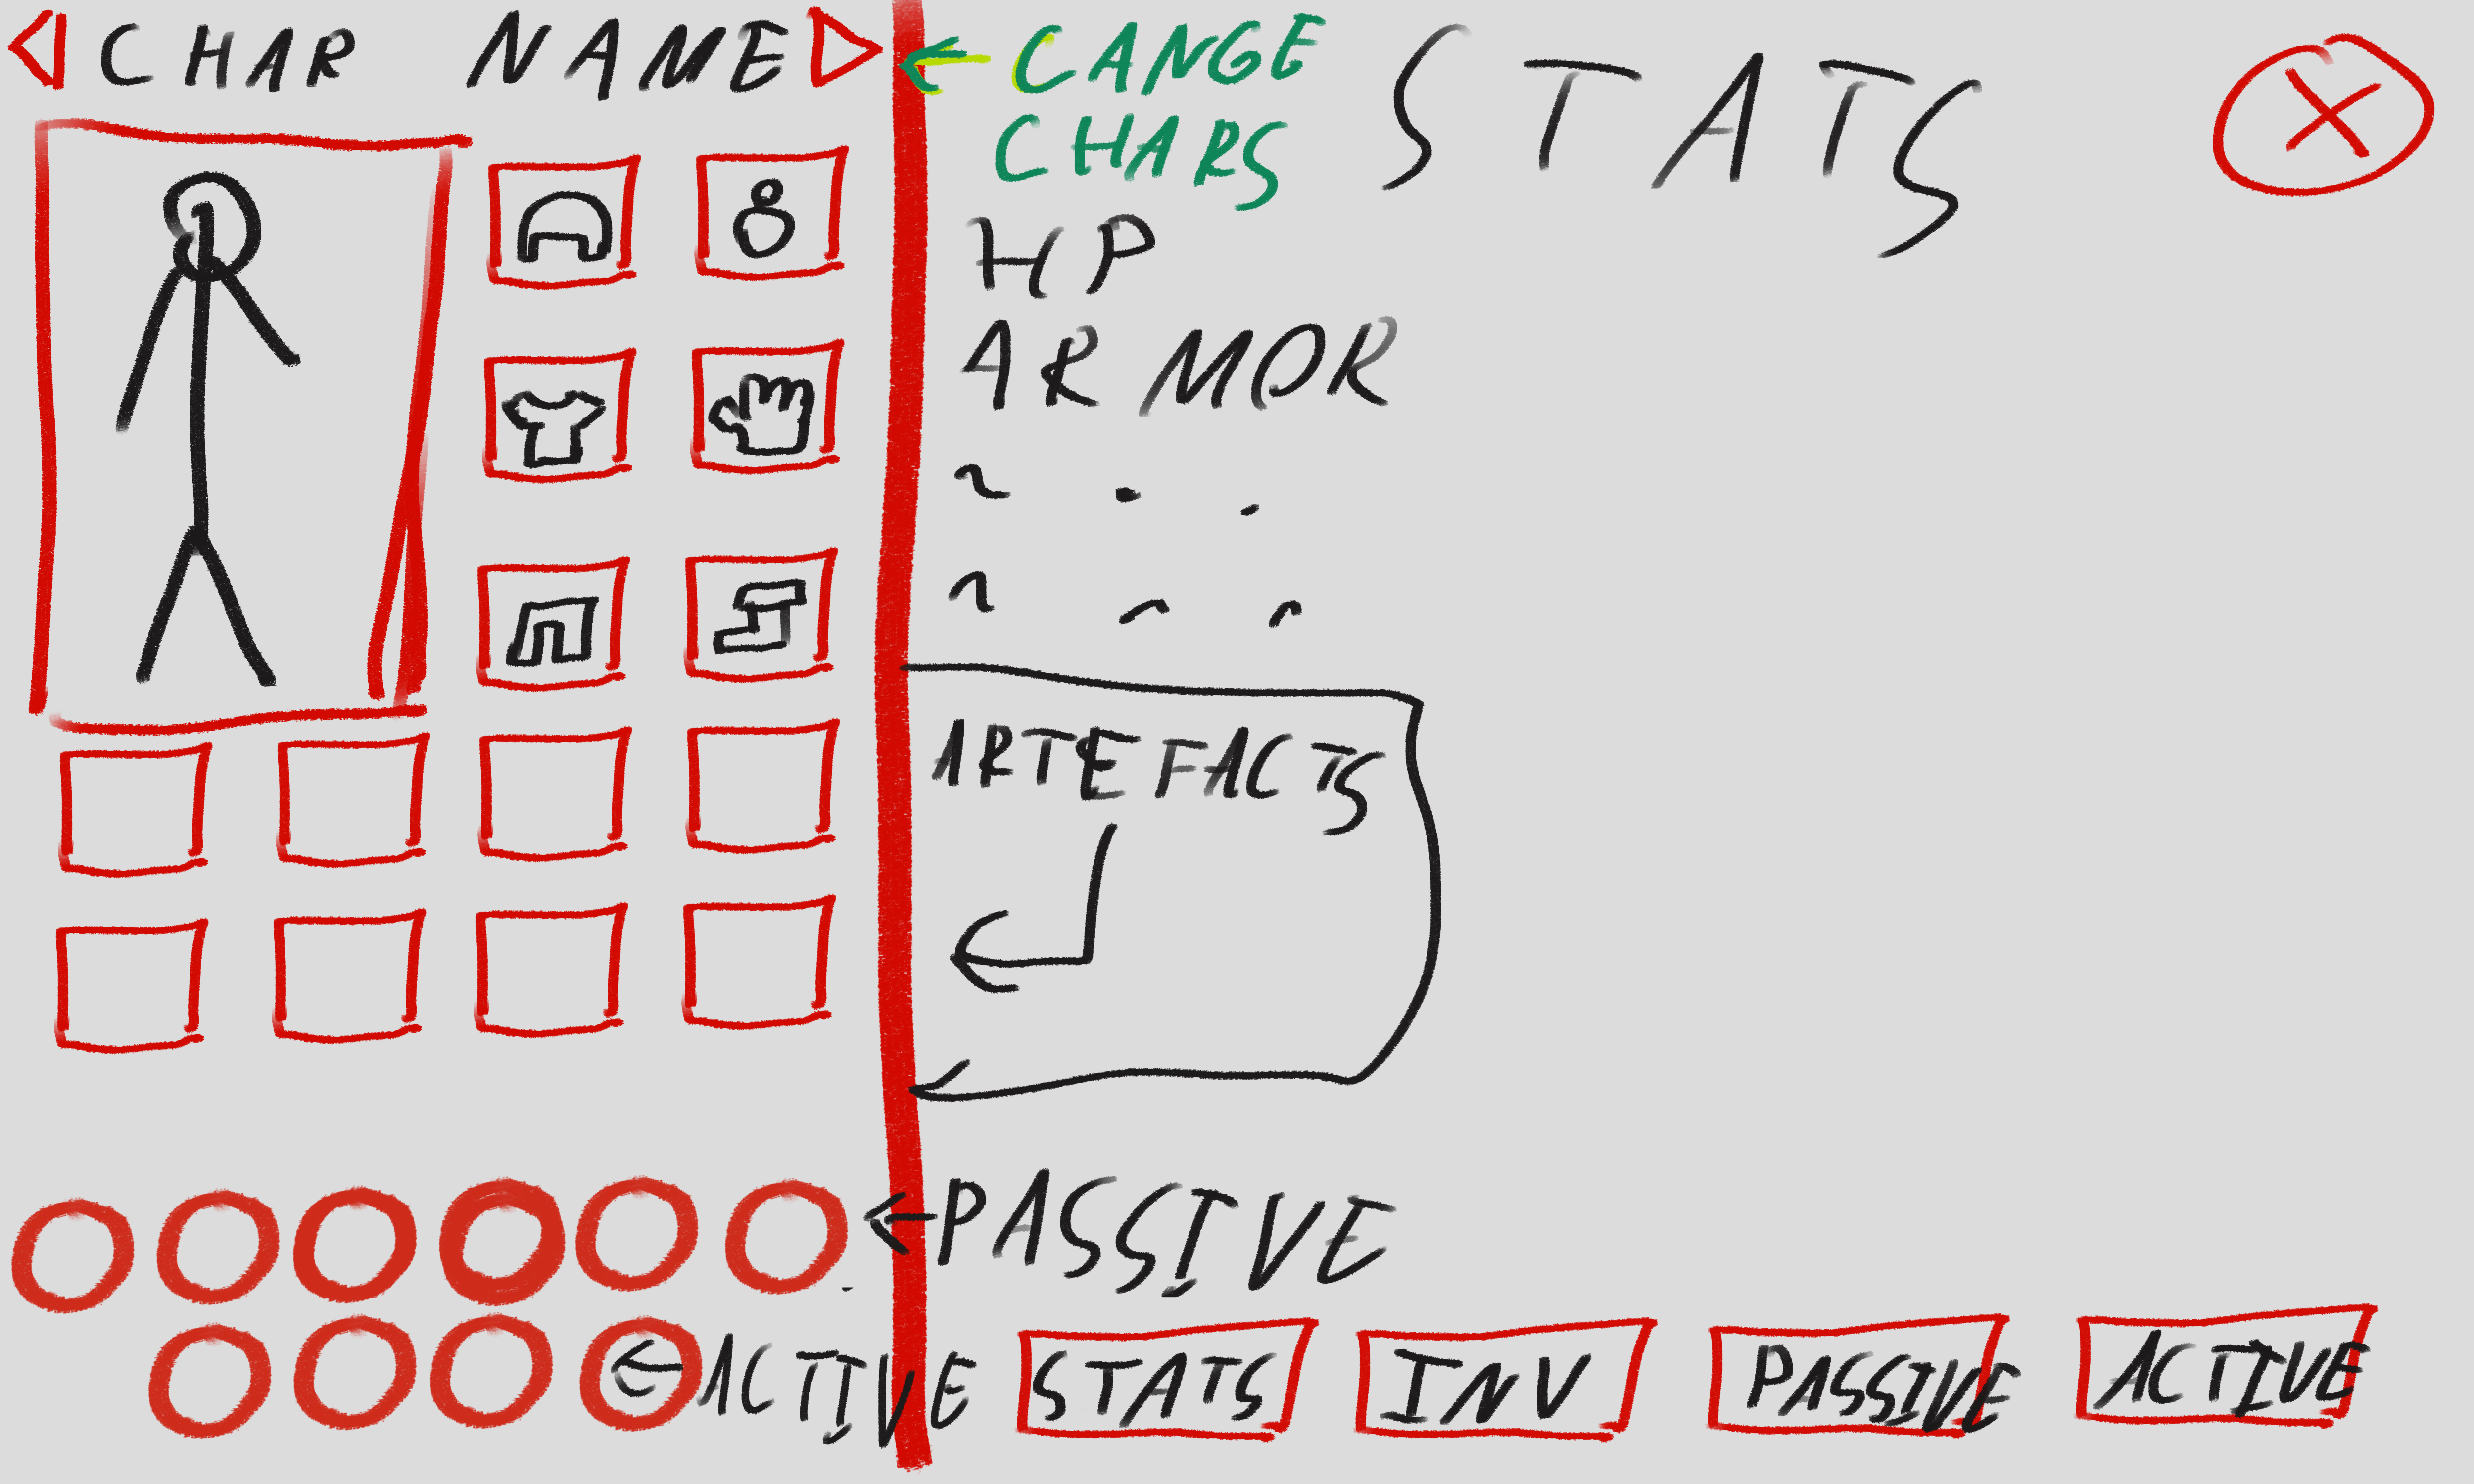 CHAR NAME
CANGE
CHARS
STATS
HP
ARMOR
ARTEFACTS
PASSIVE
ACTIVE
STATS
INV
PASSIVE
ACTIVE